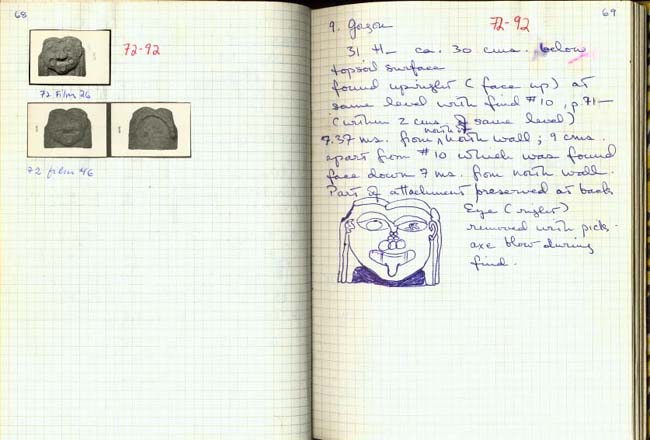 68
72-92
72 Film 26
72 film 46
69
9. Gorgon
72-92
31 H_ ca. 30 cms. below
topsoil surface
found upright (face up) at
same level with find #10, p.71—
(within 2 cms. of same level)
7.37 ms. from north of north wall; 9 cms.
apart from #10 which was found
face down 7 ms. from north wall.
Part of attachment preserved at back
Eye (right)
removed with pick-
axe blow during
find.